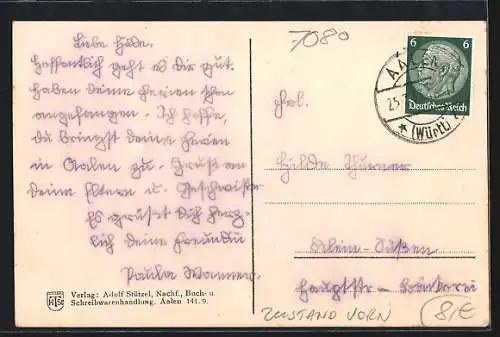 Liebe Hilde.
Hoffentlich geht es dir gut.
Haben deine Ferien schon
angefangen. Ich hoffe,
du bringst deine Ferien
in Aalen zu. Gruß an
deine Eltern u. Geschwister
Es grüßt dich herz-
lich deine Freundin
Paula
Verlag: Adolf Stützel, Nachf., Buch- u.
Schreibwarenhandlung, Aalen 141. 9.
7080
6 6
Deutsches Reich
AALEN
(Württ)
Frl.
Hilde
Klein-Süßen
Hauptstr-
ZUSTAND VORN
8,-€